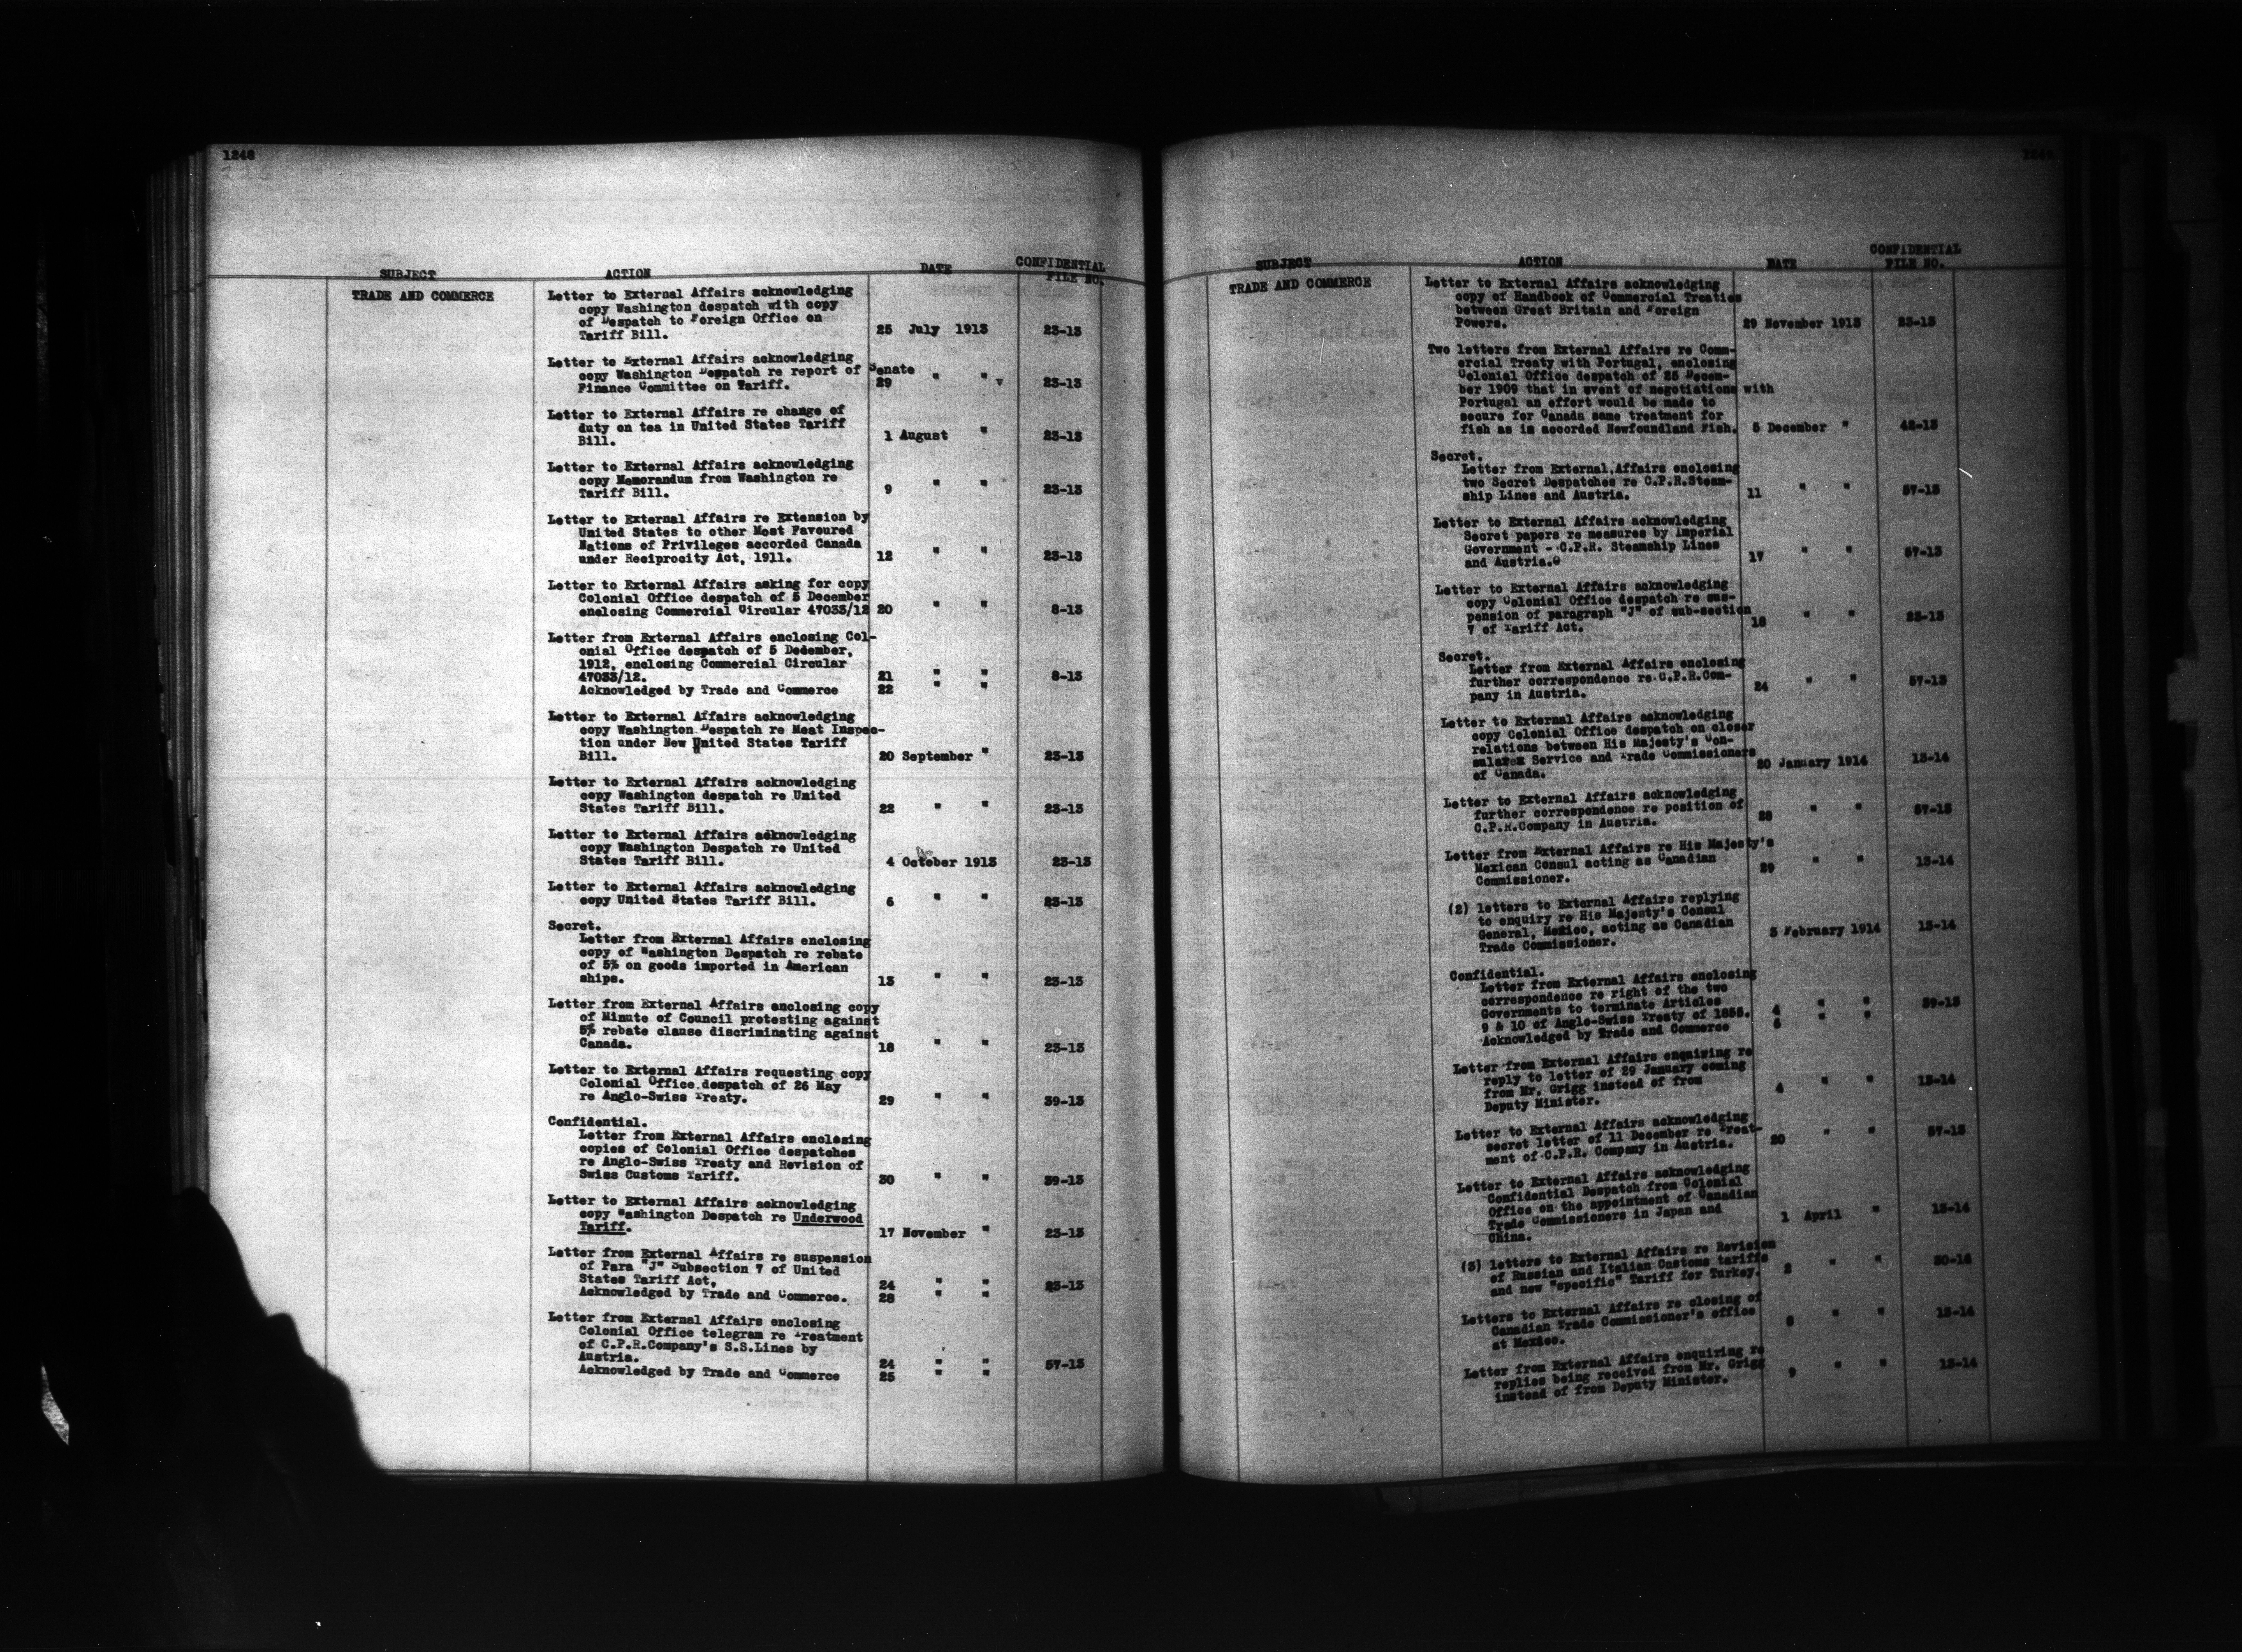 1248
SUBJECT ACTION DATE CONFIDENTIAL
FILE NO.
TRADE AND COMMERCE
Letter to External Affairs acknowledging
copy Washington despatch with copy
of Despatch to Foreign Office on
Tariff Bill. 25 July 1913 23-13
Letter to External Affairs acknowledging
copy Washington Despatch re report of Senate
Finance Committee on Tariff. 29 " " v 23-13
Letter to External Affairs re change of
duty on tea in United States Tariff
Bill. 1 August " 23-13
Letter to External Affairs acknowledging
copy Memorandum from Washington re
Tariff Bill. 9 " " 23-13
Letter to External Affairs re Extension by
United States to other Most Favoured
Nations of Privileges accorded Canada
under Reciprocity Act, 1911. 12 " " 23-13
Letter to External Affairs asking for copy
Colonial Office despatch of 5 December
enclosing Commercial Circular 47033/12 20 " " 8-13
Letter from External Affairs enclosing Col-
onial Office despatch of 5 December,
1912, enclosing Commercial Circular
47033/12. 21 " " 8-13
Acknowledged by Trade and Commerce 22 " "
Letter to External Affairs acknowledging
copy Washington Despatch re Meat Inspec-
tion under New United States Tariff
Bill. 20 September " 23-13
Letter to External Affairs acknowledging
copy Washington despatch re United
States Tariff Bill. 22 " " 23-13
Letter to External Affairs acknowledging
copy Washington Despatch re United
States Tariff Bill. 4 October 1913 23-13
Letter to External Affairs acknowledging
copy United States Tariff Bill. 6 " " 23-13
Secret.
Letter from External Affairs enclosing
copy of Washington Despatch re rebate
of 5% on goods imported in American
ships. 13 " " 23-13
Letter from External Affairs enclosing copy
of Minute of Council protesting against
5% rebate clause discriminating against
Canada. 18 " " 23-13
Letter to External Affairs requesting copy
Colonial Office despatch of 26 May
re Anglo-Swiss Treaty. 29 " " 39-13
Confidential.
Letter from External Affairs enclosing
copies of Colonial Office despatches
re Anglo-Swiss Treaty and Revision of
Swiss Customs Tariff. 30 " " 39-13
Letter to External Affairs acknowledging
copy Washington Despatch re Underwood
Tariff. 17 November " 23-13
Letter from External Affairs re suspension
of Para "J" Subsection 7 of United
States Tariff Act, 24 " " 23-13
Acknowledged by Trade and Commerce. 28 " "
Letter from External Affairs enclosing
Colonial Office telegram re Treatment
of C.P.R.Company's S.S.Lines by
Austria. 24 " " 57-13
Acknowledged by Trade and Commerce 25 " "
SUBJECT ACTION DATE CONFIDENTIAL
FILE NO.
TRADE AND COMMERCE
Letter to External Affairs acknowledging
copy of Handbook of Commercial Treaties
between Great Britain and Foreign
Powers. 29 November 1913 23-13
Two letters from External Affairs re Comm-
ercial Treaty with Portugal, enclosing
Colonial Office despatch of 23 Decem-
ber 1909 that in event of negotiations with
Portugal an effort would be made to
secure for Canada same treatment for
fish as is accorded Newfoundland Fish. 5 December " 42-13
Secret.
Letter from External Affairs enclosing
two Secret Despatches re C.P.R.Steam-
ship Lines and Austria. 11 " " 57-13
Letter to External Affairs acknowledging
Secret papers re measures by Imperial
Government - C.P.R. Steamship Lines
and Austria. 17 " " 57-13
Letter to External Affairs acknowledging
copy Colonial Office despatch re sus-
pension of paragraph "J" of sub-section
7 of Tariff Act. 18 " " 23-13
Secret.
Letter from External Affairs enclosing
further correspondence re C.P.R.Com-
pany in Austria. 24 " " 57-13
Letter to External Affairs acknowledging
copy Colonial Office despatch on closer
relations between His Majesty's Con-
sular Service and Trade Commissioners
of Canada. 20 January 1914 13-14
Letter to External Affairs acknowledging
further correspondence re position of
C.P.R.Company in Austria. 28 " " 57-13
Letter from External Affairs re His Majesty's
Mexican Consul acting as Canadian
Commissioner. 29 " " 13-14
(2) letters to External Affairs replying
to enquiry re His Majesty's Consul
General, Mexico, acting as Canadian
Trade Commissioner. 3 February 1914 13-14
Confidential.
Letter from External Affairs enclosing
correspondence re right of the two
Governments to terminate Articles
9 & 10 of Anglo-Swiss Treaty of 1855. 4 " " 39-13
Acknowledged by Trade and Commerce 5 " "
Letter from External Affairs enquiring re
reply to letter of 29 January coming
from Mr. Grigg instead of from
Deputy Minister. 4 " " 13-14
Letter to External Affairs acknowledging
secret letter of 11 December re Treat-
ment of C.P.R. Company in Austria. 20 " " 57-13
Letter to External Affairs acknowledging
Confidential Despatch from Colonial
Office on the appointment of Canadian
Trade Commissioners in Japan and
China. 1 April " 13-14
(3) letters to External Affairs re Revision
of Russian and Italian Customs tariffs
and new "specific" Tariff for Turkey. 2 " " 30-14
Letters to External Affairs re closing of
Canadian Trade Commissioner's office
at Mexico. 8 " " 13-14
Letter from External Affairs enquiring re
replies being received from Mr. Grigg
instead of from Deputy Minister. 9 " " 13-14